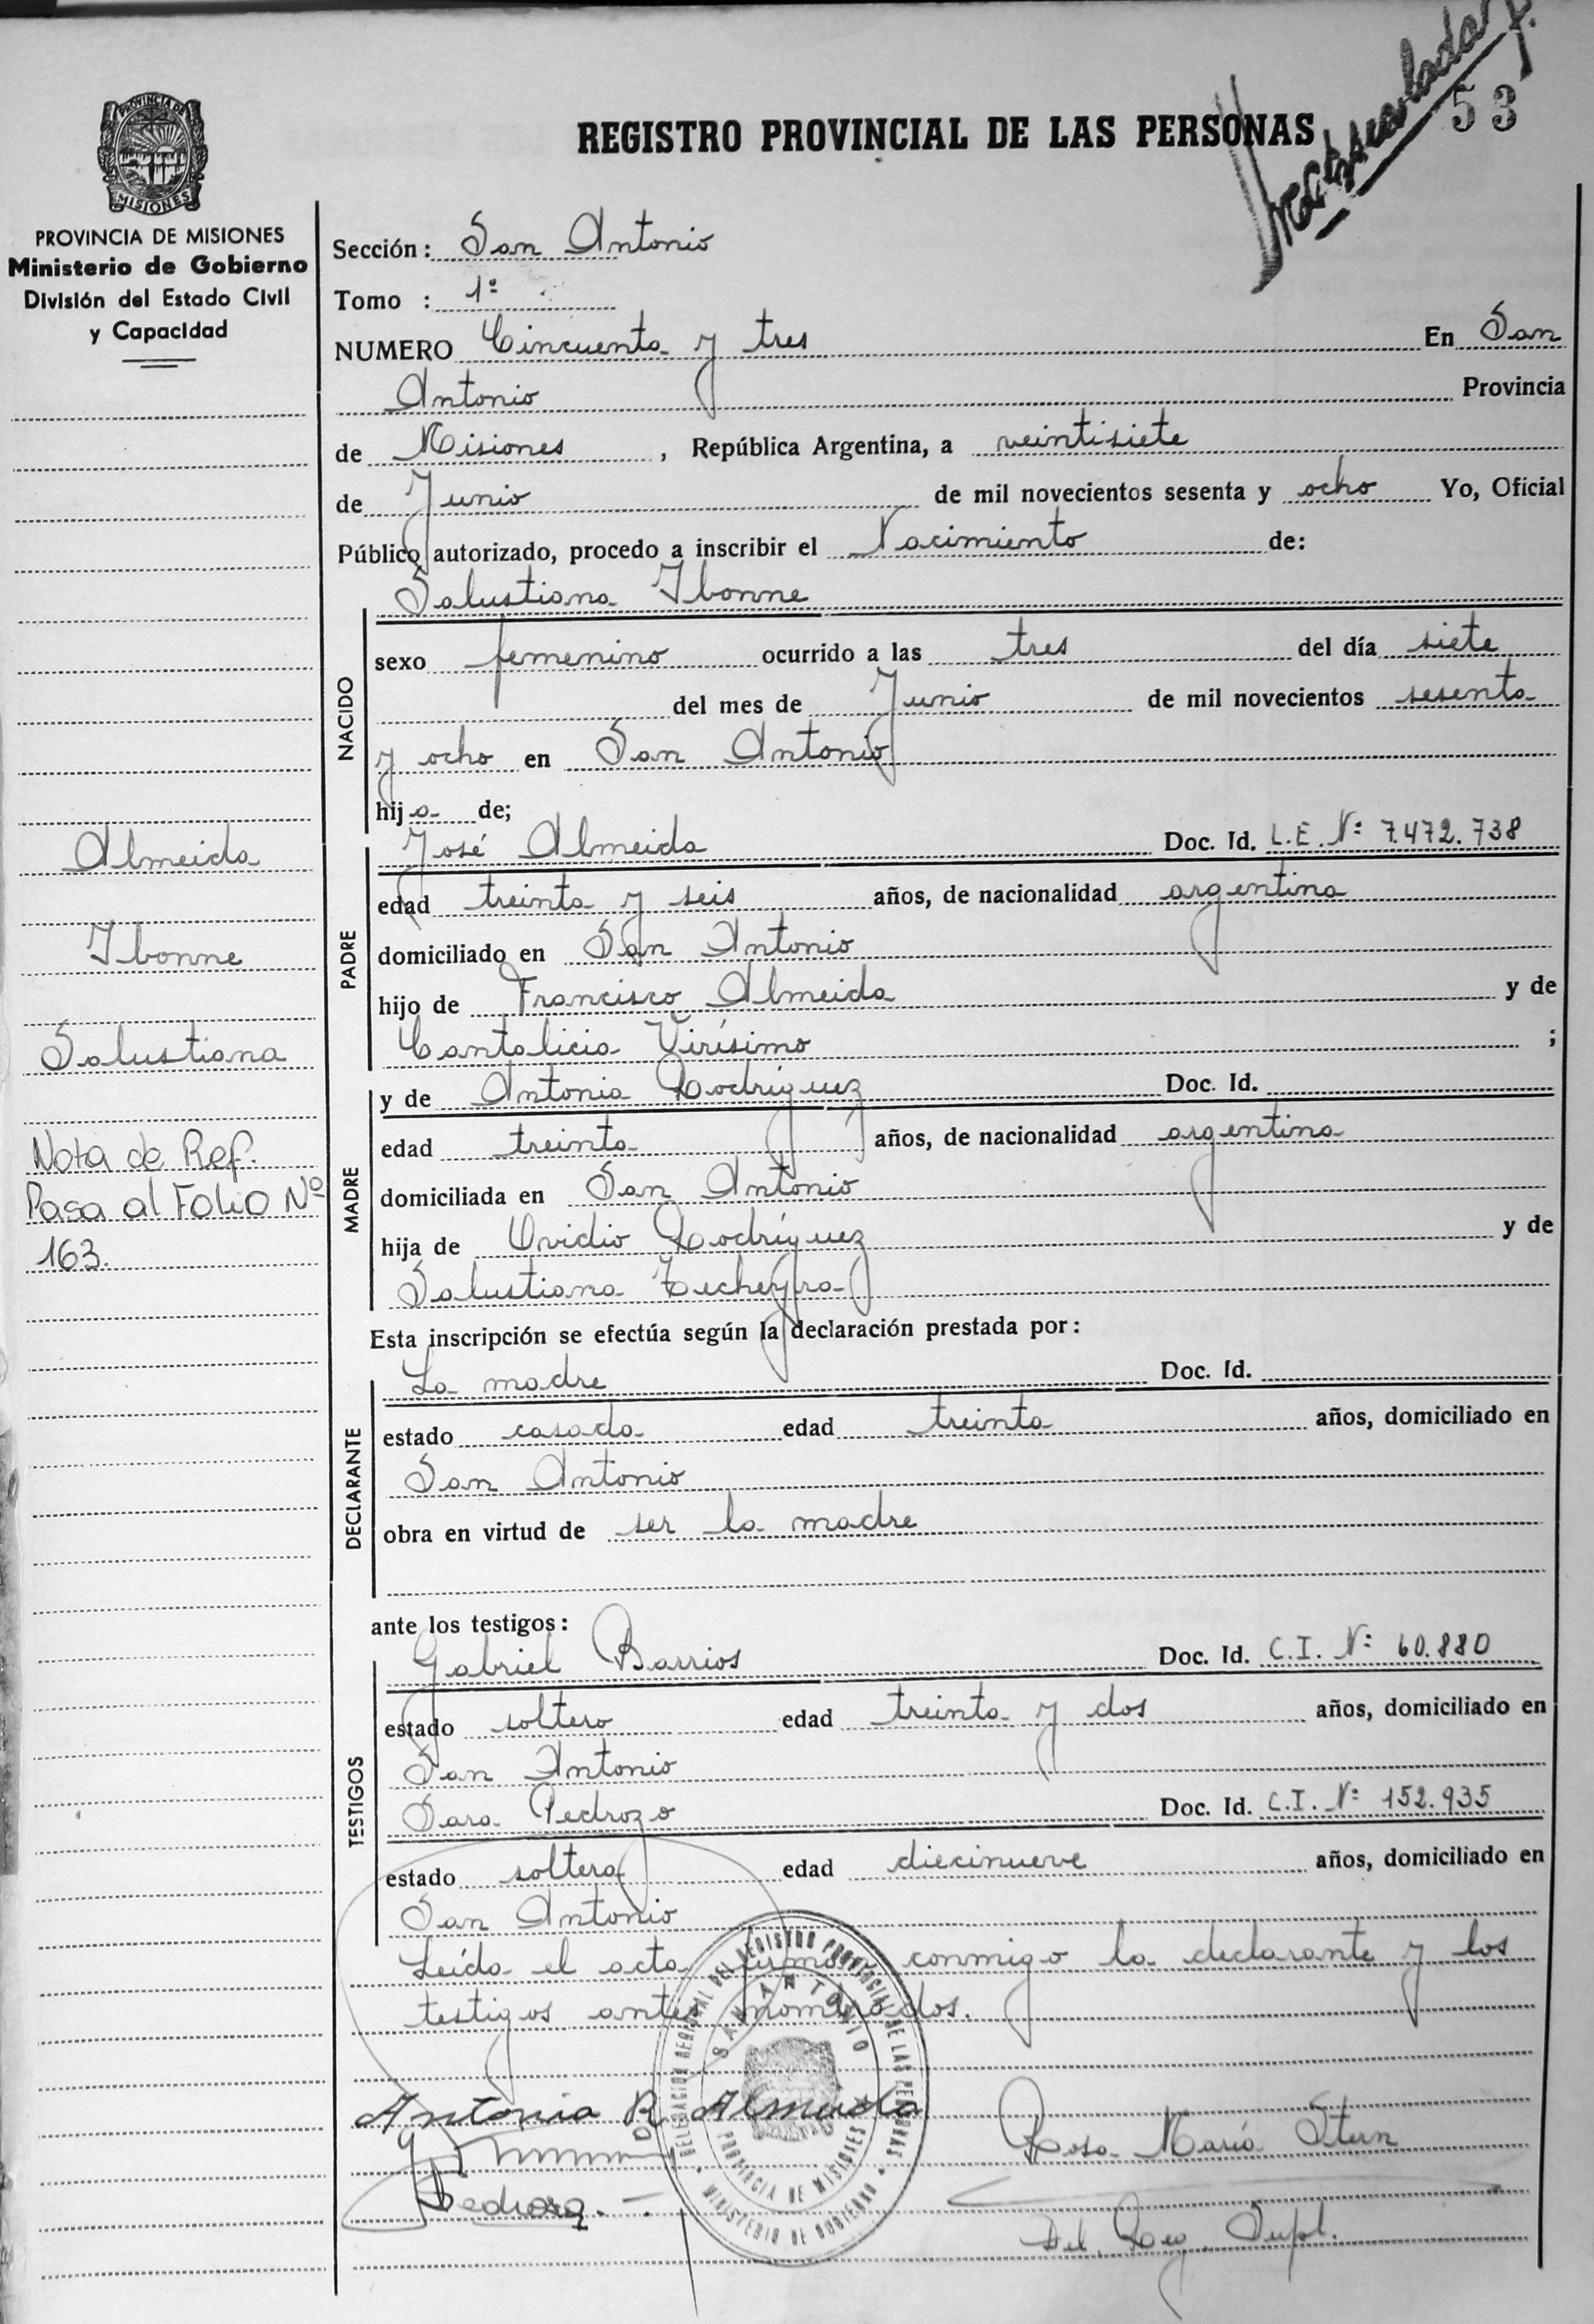 53
REGISTRO PROVINCIAL DE LAS PERSONAS
PROVINCIA DE
MISIONES
PROVINCIA DE MISIONES
Ministerio de Gobierno
División del Estado Civil
y Capacidad
Sección: San Antonio
Tomo : 1º
NUMERO Cincuenta y tres En San
Antonio Provincia
de Misiones, República Argentina, a veintisiete
de Junio de mil novecientos sesenta y ocho Yo, Oficial
Público autorizado, procedo a inscribir el Nacimiento de:
Salustiana Ibonne
NACIDO
sexo femenino ocurrido a las tres del día siete
del mes de Junio de mil novecientos sesenta
y ocho en San Antonio
hija de;
Almeida
Ibonne
Salustiana
Nota de Ref.
Pasa al Folio Nº
163.
PADRE
José Almeida Doc. Id. L.E. Nº 7.472.738
edad treinta y seis años, de nacionalidad argentina
domiciliado en San Antonio
hijo de Francisco Almeida y de
Cantalicia Virísimo ;
MADRE
y de Antonia Rodríguez Doc. Id.
edad treinta años, de nacionalidad argentina
domiciliada en San Antonio
hija de Ovidio Rodríguez y de
Salustiana Techeyra
Esta inscripción se efectúa según la declaración prestada por:
DECLARANTE
La madre Doc. Id.
estado casada edad treinta años, domiciliado en
San Antonio
obra en virtud de ser la madre
ante los testigos:
TESTIGOS
Gabriel Barrios Doc. Id. C.I. Nº 60.880
estado soltero edad treinta y dos años, domiciliado en
San Antonio
Sara Pedrozo Doc. Id. C.I. Nº 152.935
estado soltera edad diecinueve años, domiciliado en
San Antonio
Leída el acta, firman conmigo la declarante y los
testigos antes nombrados.
DELEGACION REGIONAL DEL REGISTRO PROVINCIAL DE LAS PERSONAS
SAN ANTONIO
PROVINCIA DE MISIONES
MINISTERIO DE GOBIERNO
Antonia R D Almeida
Rosa María Stern
Del. Reg. Supl.